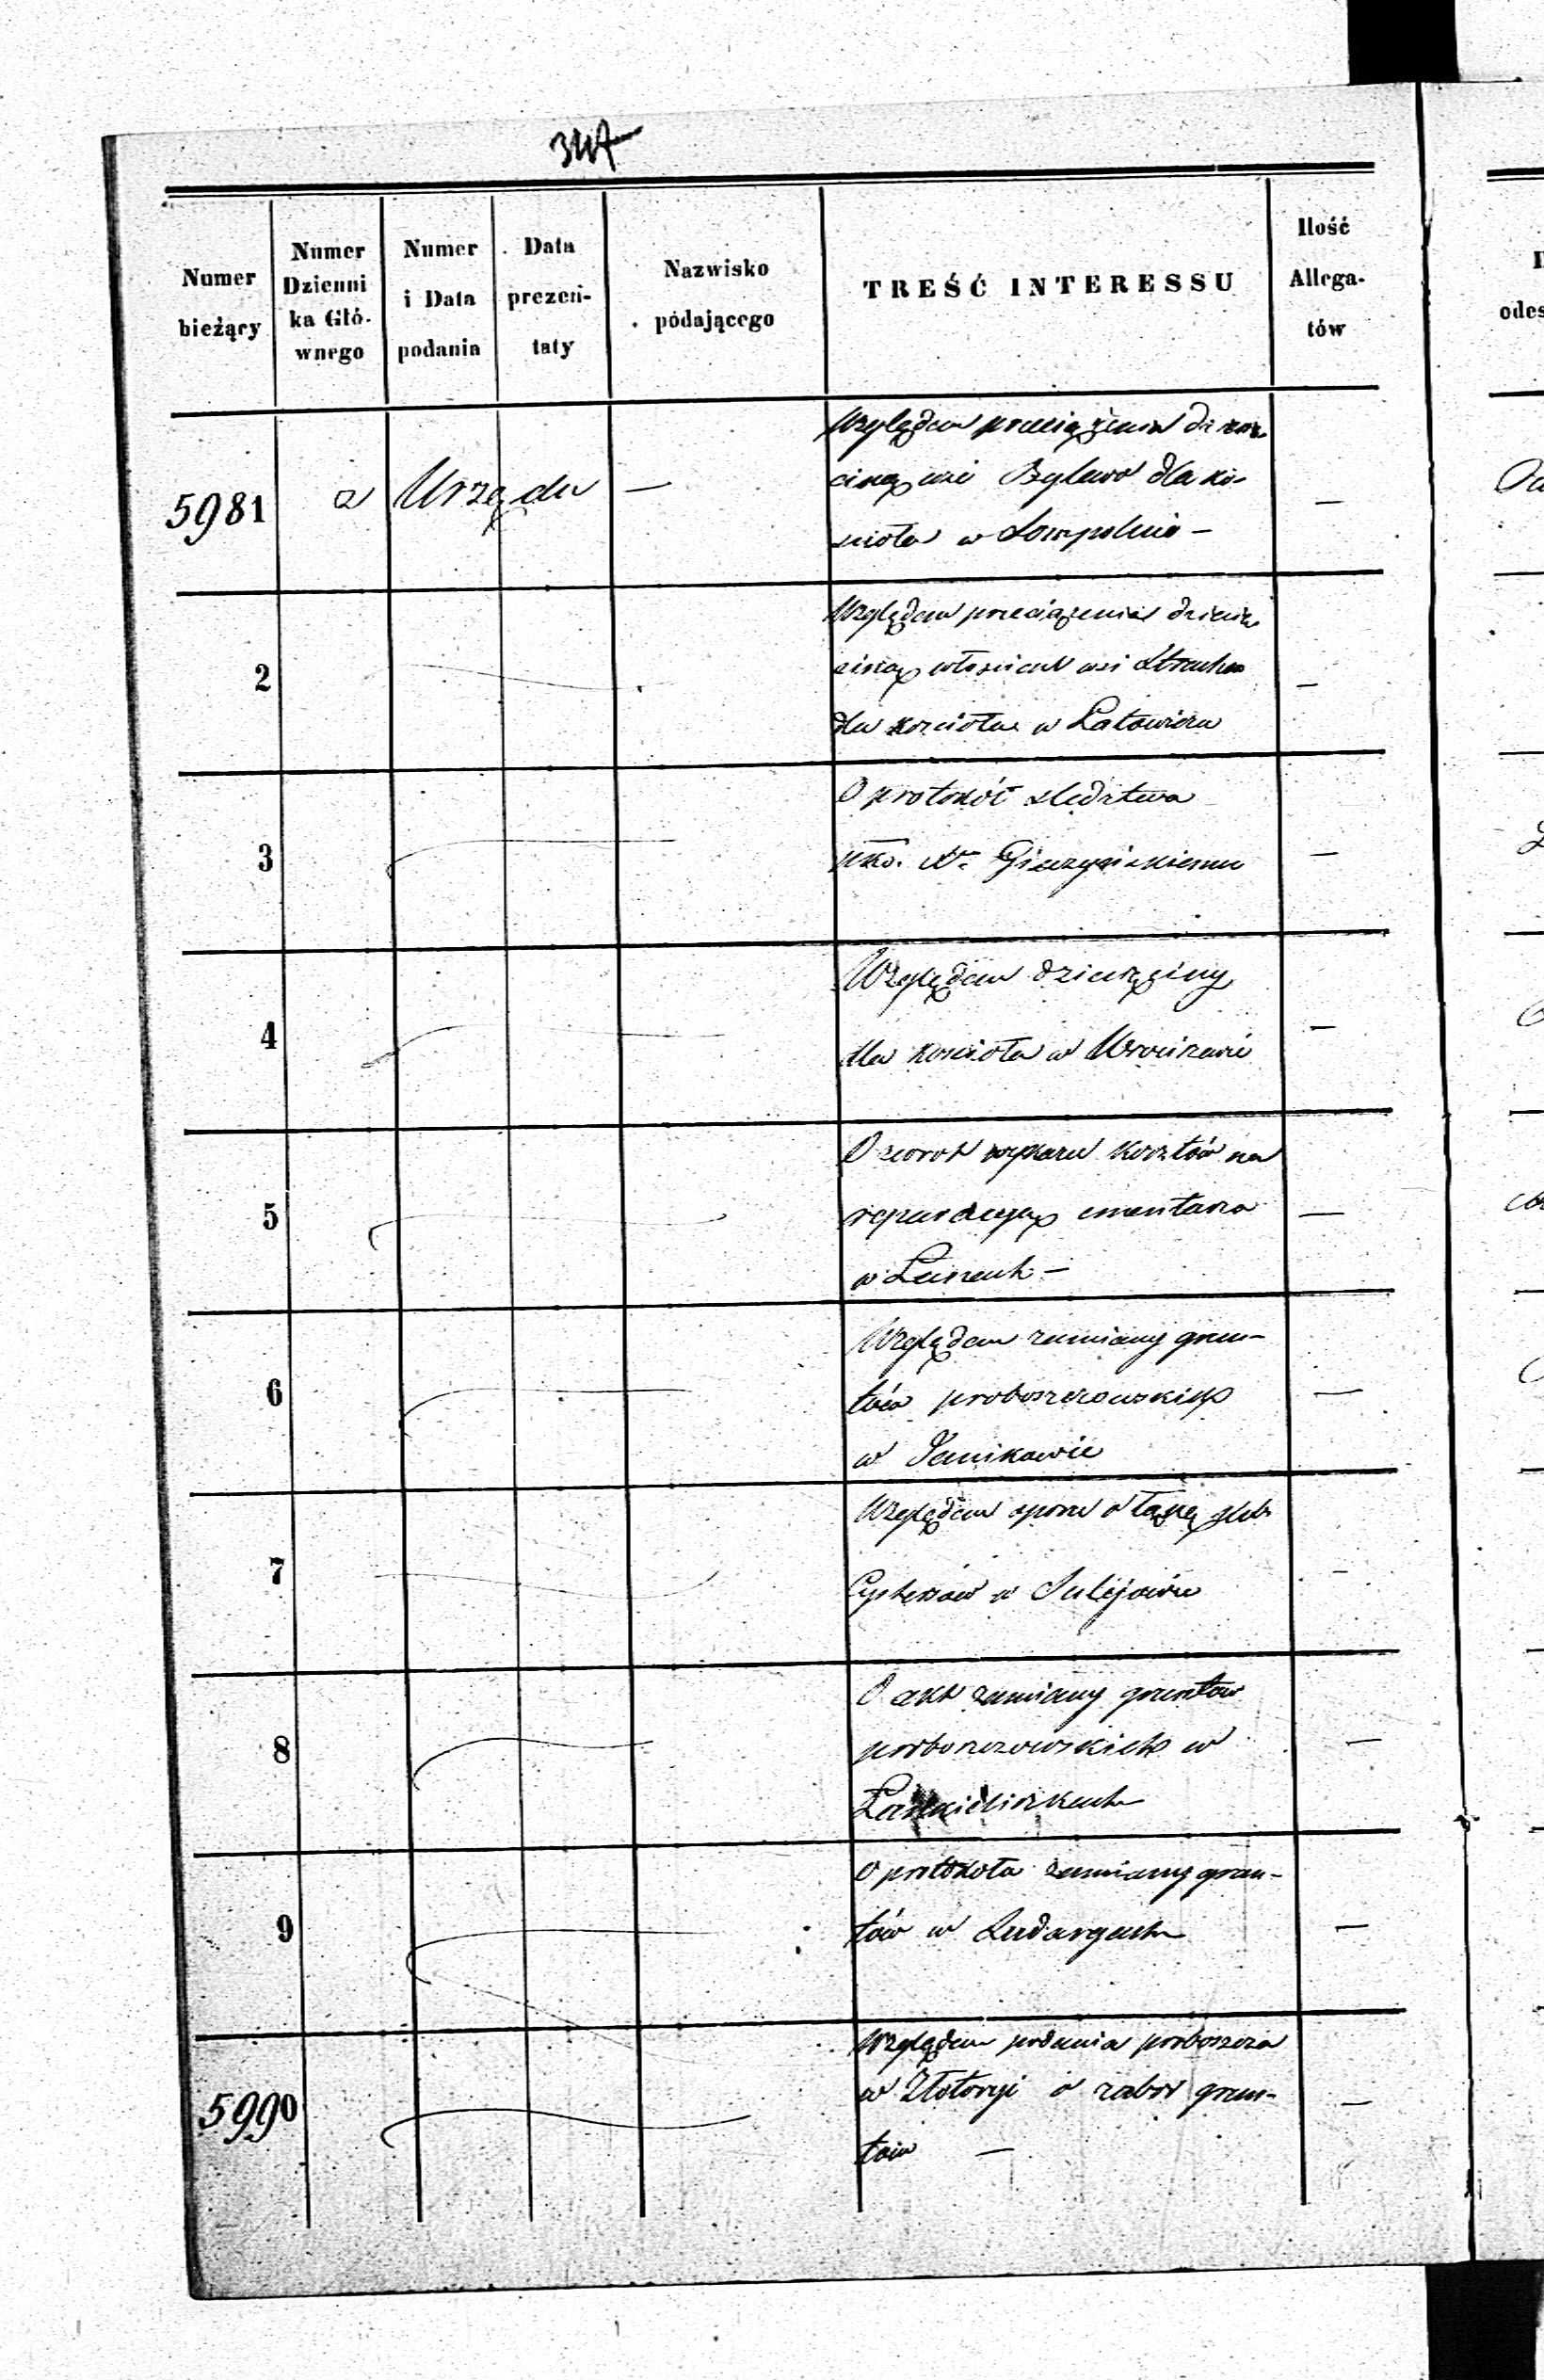 347
Numer
bieżący
Numer
Dzienni
ka Głó-
wnego
Numer
i Data
podania
Data
prezen-
taty
Nazwisko
podającego
TREŚĆ INTERESSU
Ilość
Allega-
tów
5981 z Urzędu —
Względem przeciążenia dzies
ciną wsi Bylewo dla ko-
ścioła w Sompolnie — —
2
Względem przeciążenia dziesię
ciną włościan wsi
dla kościoła w Latowiczu —
3
O protokół śledztwa
pko. Xu Gieczyńskiemu —
4
Względem dziesięciny
dla kościoła w Wrociszewie —
5
O zwrot wykazu kosztów na
reparacyą cmentarza
w — —
6
Względem zamiany grun-
tów proboszczowskich
w Janikowie —
7
Względem sporu o łąkę
Cystersów w Sulejowie —
8
O akt zamiany gruntów
proboszczowskich w
—
9
O protokoła zamiany grun-
tów w Sudargach —
5990
Względem podania proboszcza
w Złotoryi o zabór grun-
tów — —